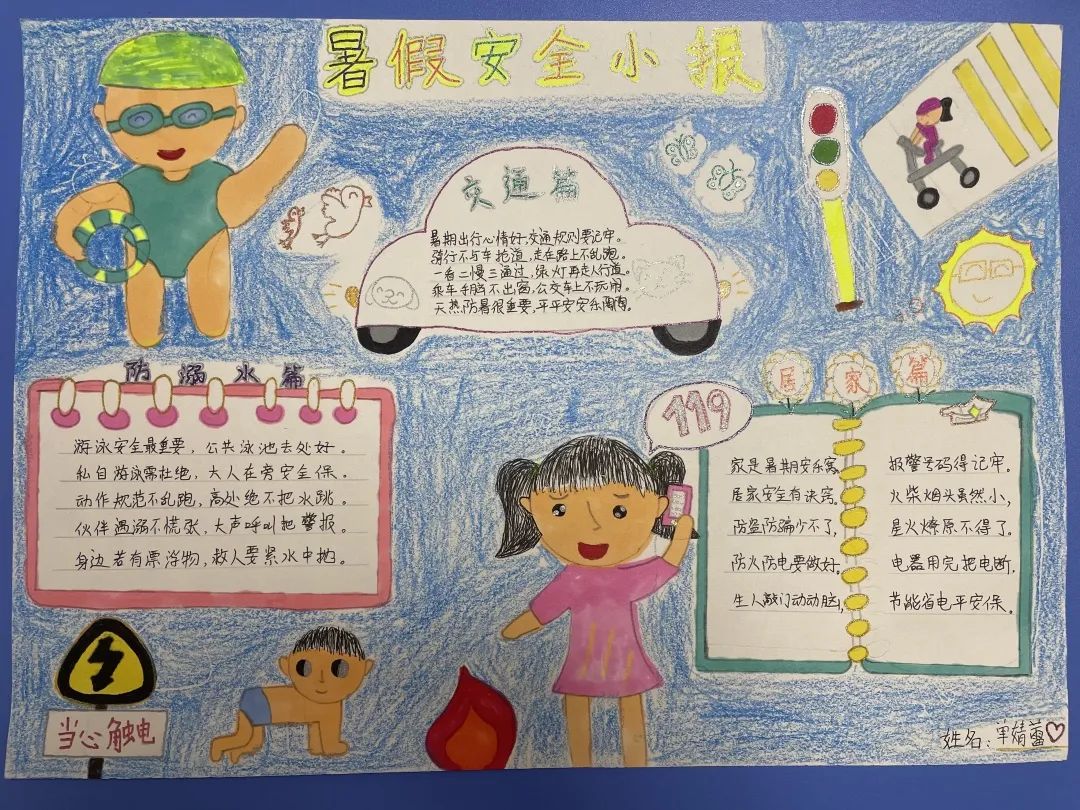 暑假安全小报
交通篇
暑期出行心情好,交通规则要记牢。
骑行不与车抢道,走在路上不乱跑。
一看二慢三通过,绿灯再走人行道。
乘车手脑不出窗,公交车上不玩闹。
天热防暑很重要,平平安安乐陶陶。
防溺水篇
游泳安全最重要,公共泳池去处好。
私自游泳需杜绝,大人在旁安全保。
动作规范不乱跑,高处绝不把水跳。
伙伴遇溺不慌张,大声呼叫把警报。
身边若有漂浮物,救人要紧水中抛。
119
居家篇
家是暑期安乐窝,
居家安全有诀窍。
防盗防骗少不了,
防火防电要做好。
生人敲门动动脑,
报警号码得记牢。
火柴烟头虽然小,
星火燎原不得了。
电器用完把电断,
节能省电平安保。
当心触电
姓名:单婧蕾